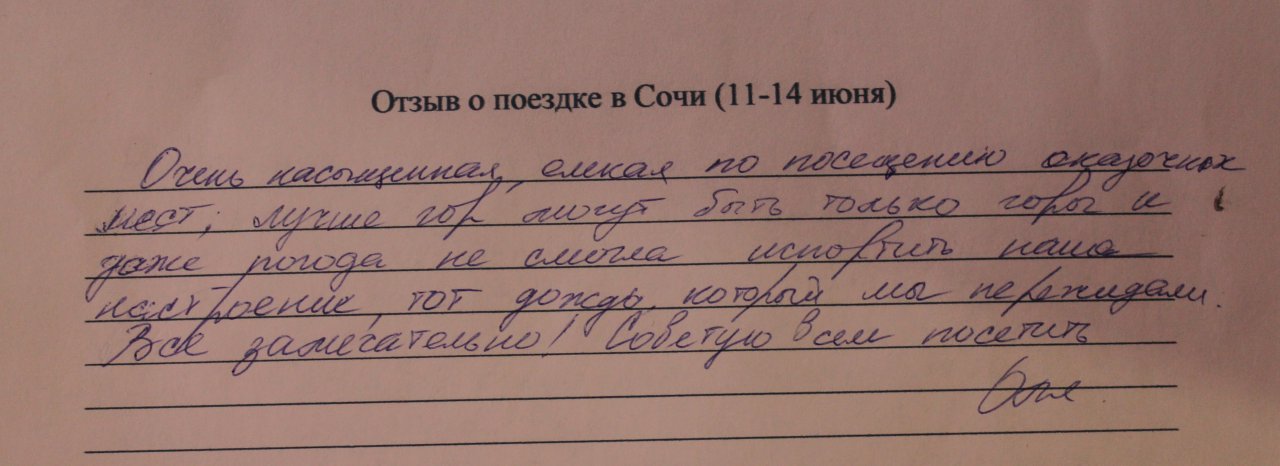 Отзыв о поездке в Сочи (11-14 июня)
Очень насыщенная, емкая по посещению сказочных
мест; лучше гор могут быть только горы и
даже погода не смогла испортить наше
настроение, тот дождь, который мы пережидали.
Все замечательно! Советую всем посетить